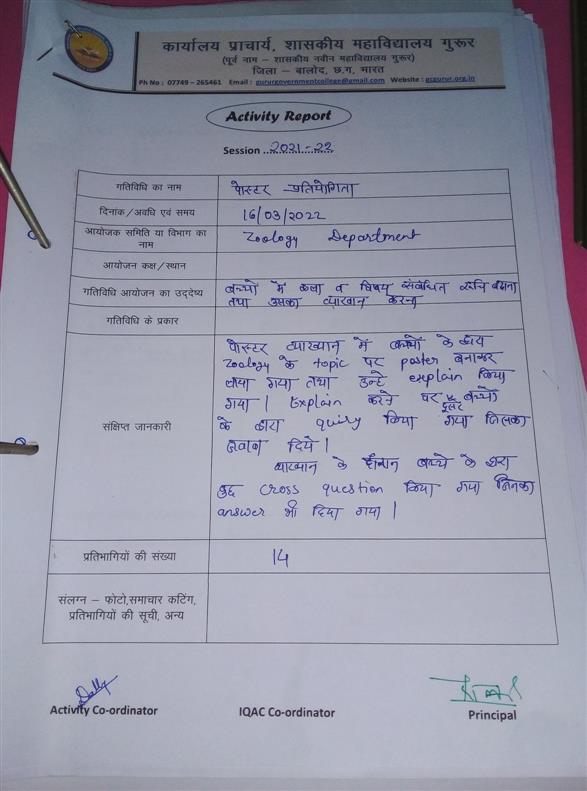 कार्यालय प्राचार्य, शासकीय महाविद्यालय गुरूर
(पूर्व नाम – शासकीय नवीन महाविद्यालय गुरूर)
जिला – बालोद, छ.ग, भारत
Ph No : 07749 – 265461 Email : gururgovernmentcollege@gmail.com Website : gcgurur.org.in
Activity Report
Session ..2021-22
गतिविधि का नाम पोस्टर प्रतियोगिता
दिनांक/अवधि एवं समय 16/03/2022
आयोजक समिति या विभाग का नाम Zoology Department
आयोजन कक्ष/स्थान
गतिविधि आयोजन का उद्देष्य बच्चों में कला व विषय संबंधित रूचि
तथा उसका व्याख्यान करना
गतिविधि के प्रकार
संक्षिप्त जानकारी
पोस्टर व्याख्यान में बच्चों के द्वारा
Zoology के topic पर poster बनाकर
लाया गया तथा उन्हे explain किया
गया | Explain करने पर दूसरे बच्चों
के द्वारा quiry किया गया जिसका
जवाब दिये |
व्याख्यान के दौरान बच्चे के द्वारा
कुछ cross question किया गया जिनका
answer भी दिया गया |
प्रतिभागियों की संख्या 14
संलग्न – फोटो,समाचार कटिंग,
प्रतिभागियों की सूची, अन्य
Activity Co-ordinator IQAC Co-ordinator Principal